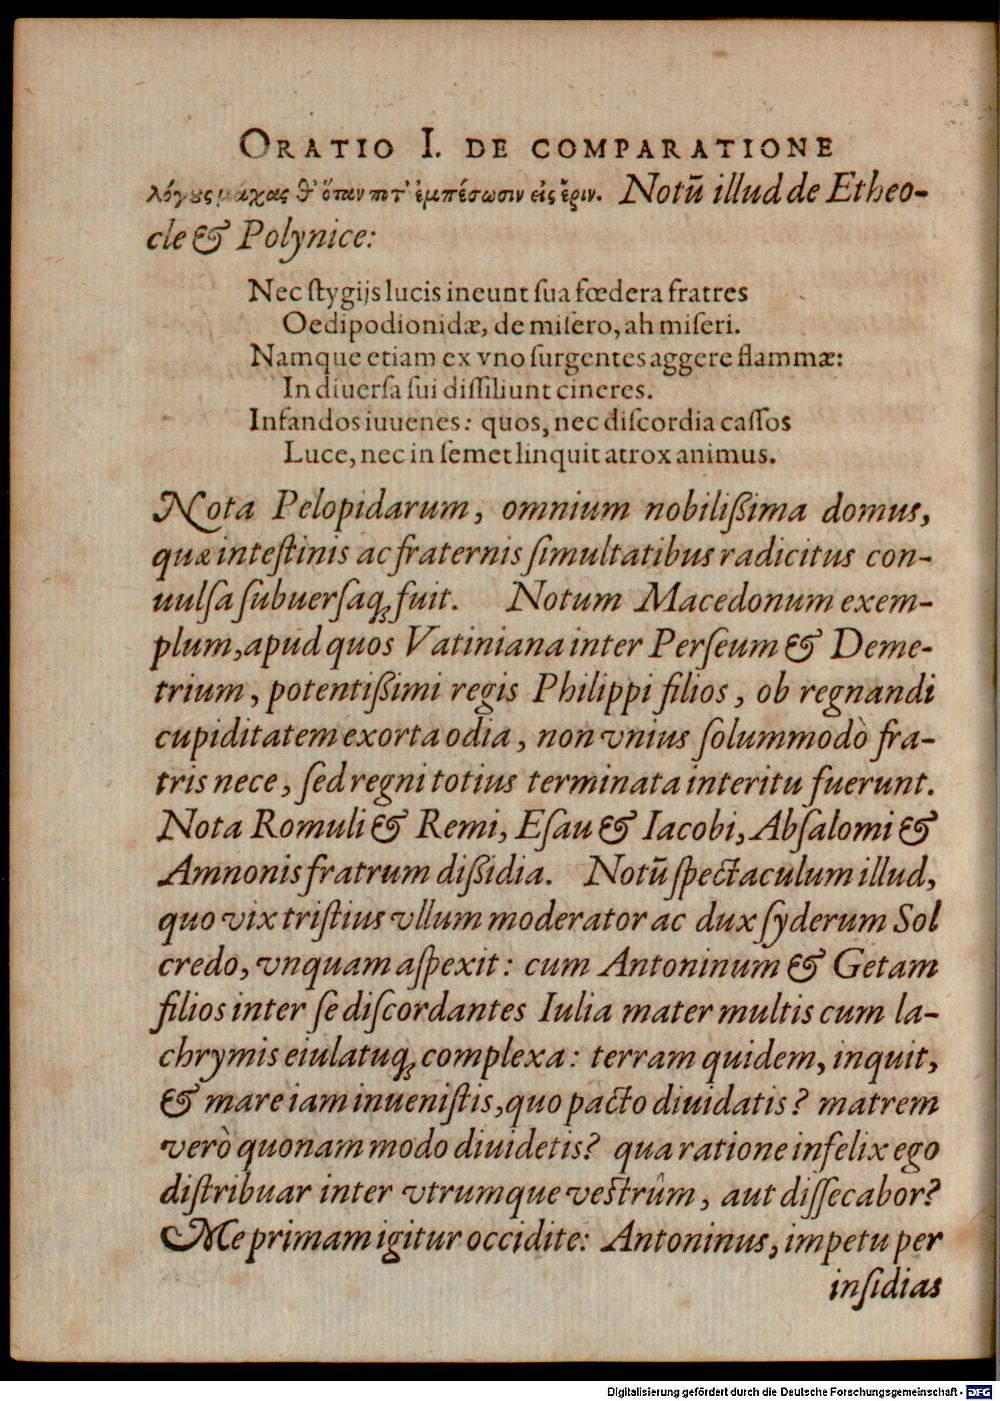 ORATIO I. DE COMPARATIONE
λόγȣς μάχας θ' ὅταν ποτ' ἐμπέσωσιν εἰς ἔριν. Notū illud de Etheo-
cle & Polynice:
Nec ſtygijs lucis ineunt ſua fœdera fratres
Oedipodionidæ, de miſero, ah miſeri.
Namque etiam ex vno ſurgentes aggere flammæ:
In diuerſa ſui diſſiliunt cineres.
Infandos iuuenes: quos, nec diſcordia caſſos
Luce, nec in ſemet linquit atrox animus.
Nota Pelopidarum, omnium nobilißima domus,
quæ inteſtinis ac fraternis ſimultatibus radicitus con-
uulſa ſubuerſaq; fuit. Notum Macedonum exem-
plum, apud quos Vatiniana inter Perſeum & Deme-
trium, potentißimi regis Philippi filios, ob regnandi
cupiditatem exorta odia, non vnius ſolummodò fra-
tris nece, ſed regni totius terminata interitu fuerunt.
Nota Romuli & Remi, Eſau & Iacobi, Abſalomi &
Amnonis fratrum dißidia. Notū ſpectaculum illud,
quo vix triſtius vllum moderator ac dux ſyderum Sol
credo, vnquam aſpexit: cum Antoninum & Getam
filios inter ſe diſcordantes Iulia mater multis cum la-
chrymis eiulatuq; complexa: terram quidem, inquit,
& mare iam inueniſtis, quo pacto diuidatis? matrem
verò quonam modo diuidetis? qua ratione infelix ego
diſtribuar inter vtrumque veſtrûm, aut diſſecabor?
Me primam igitur occidite: Antoninus, impetu per
inſidias
Digitalisierung gefördert durch die Deutsche Forschungsgemeinschaft - DFG